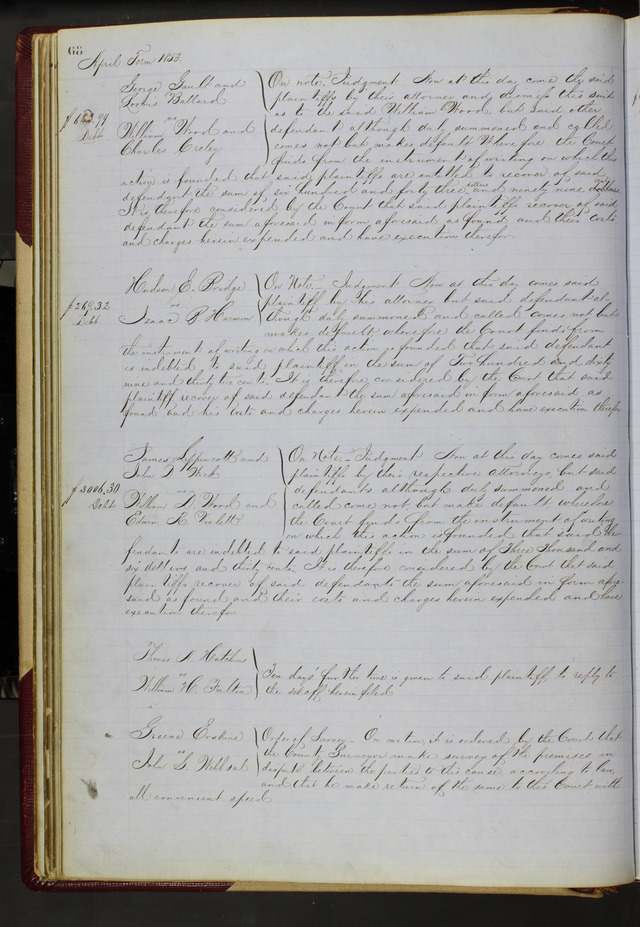 68
April Term 1853.
George Gault and
Lewis Ballard
vs
William Wood and
Charles Creley
$643.99
Debt
On note. Judgment Now at this day come the said
plaintiffs by their attorney and dismiss this suit
as to the said William Wood, but said other
defendant although duly summoned and called
comes not but makes default Wherefore the Court
finds from the instrument of writing on which this
action is founded that said plaintiffs are entitled to recover of said
defendant the sum of six hundred and forty three dollars and ninety nine
It is therefore considered by the Court that said plaintiffs recover of said
defendant the sum aforesaid in form aforesaid as found and their costs
and charges herein expended and have execution therefor.
Hudson E. Bridge
vs
Isaac P Harmen
$269.32
Debt
On Note. Judgment Now at this day comes said
plaintiff by his attorney but said defendant al
though duly summoned and called comes not but
makes default wherefore the Court finds from
the instrument of writing on which this action is founded that said defendant
is indebted to said plaintiff in the sum of Two hundred and sixty
nine and thirty two cents. It is therefore considered by the Court that said
plaintiff recover of said defendant the sum aforesaid in form aforesaid as
found and his costs and charges herein expended and have execution therefor
James Lippincott and
John
vs
William D. Wood and
Edwin R. Violett
$3006.30
Debt
On Note. Judgment Now at this day comes said
plaintiffs by their respective attorneys but said
defendants although duly summoned and
called come not but make default wherefore
the Court finds from the instrument of writing
on which the action is founded that said de
fendants are indebted to said plaintiffs in the sum of Three thousand and
six dollars and thirty cents. It is therefore considered by the Court that said
plaintiffs recover of said defendants the sum aforesaid in form afore
said as found and their costs and charges herein expended and have
execution therefor
Thomas
vs
William H. Fulton
Ten days further time is given to said plaintiff to reply to
the setoff herein filed
Greene Erskine
vs
John G Webb et al
Order of Survey. On motion it is ordered by the Court that
the County Surveyor make survey of the premises in
dispute between the parties to this cause according to law,
and that he make return of the same to this Court with
all convenient speed